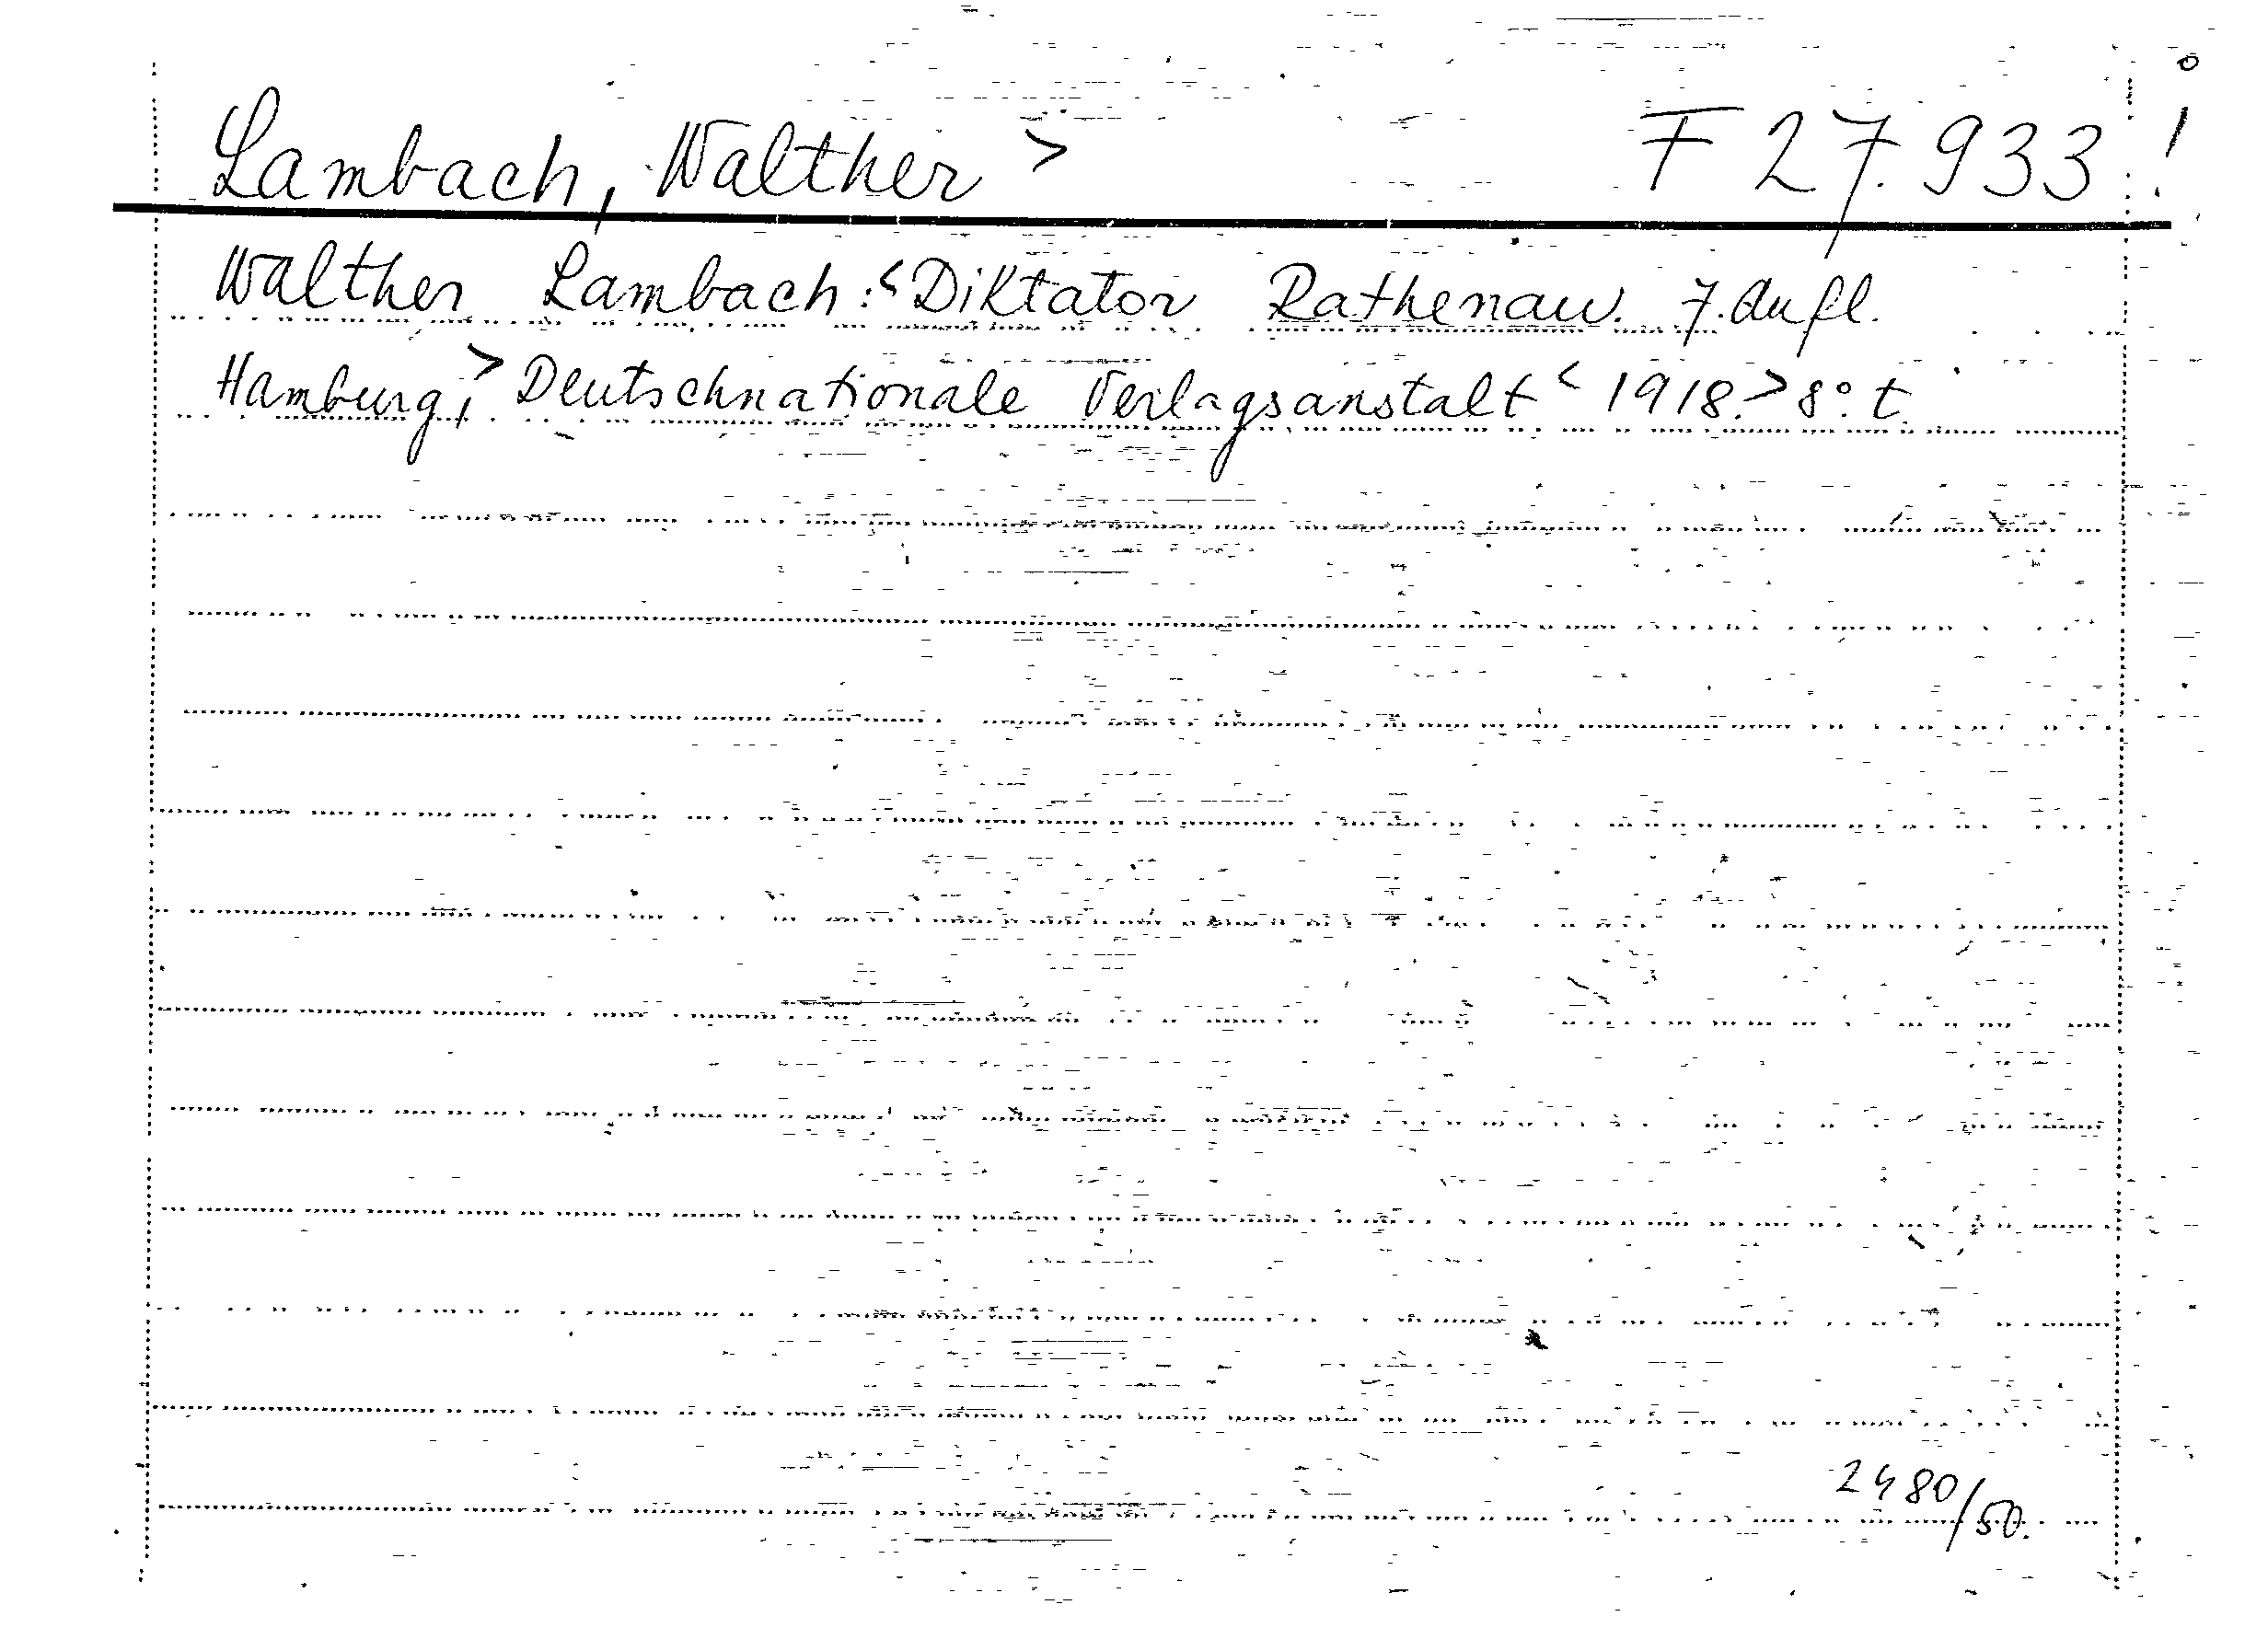 Lambach, Walther > F 27.933 !
Walther Lambach: < Diktator Rathenau. 7. Aufl.
Hamburg, > Deutschnationale Verlagsanstalt < 1918. > 8° t.
2480/50.